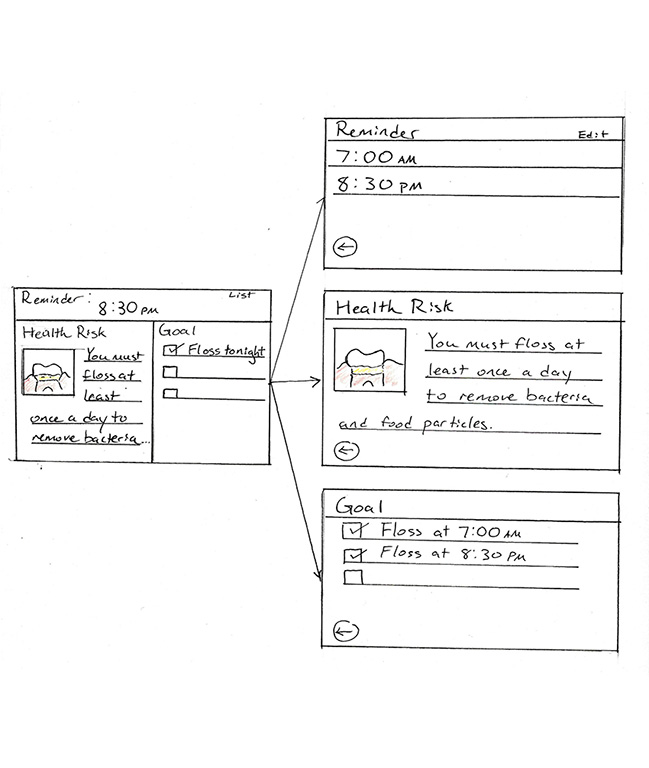 Reminder: List
8:30 PM
Health Risk
You must
floss at
least
once a day to
remove bacteria...
Goal
Floss tonight
Reminder Edit
7:00 AM
8:30 PM
Health Risk
You must floss at
least once a day
to remove bacteria
and food particles.
Goal
Floss at 7:00 AM
Floss at 8:30 PM